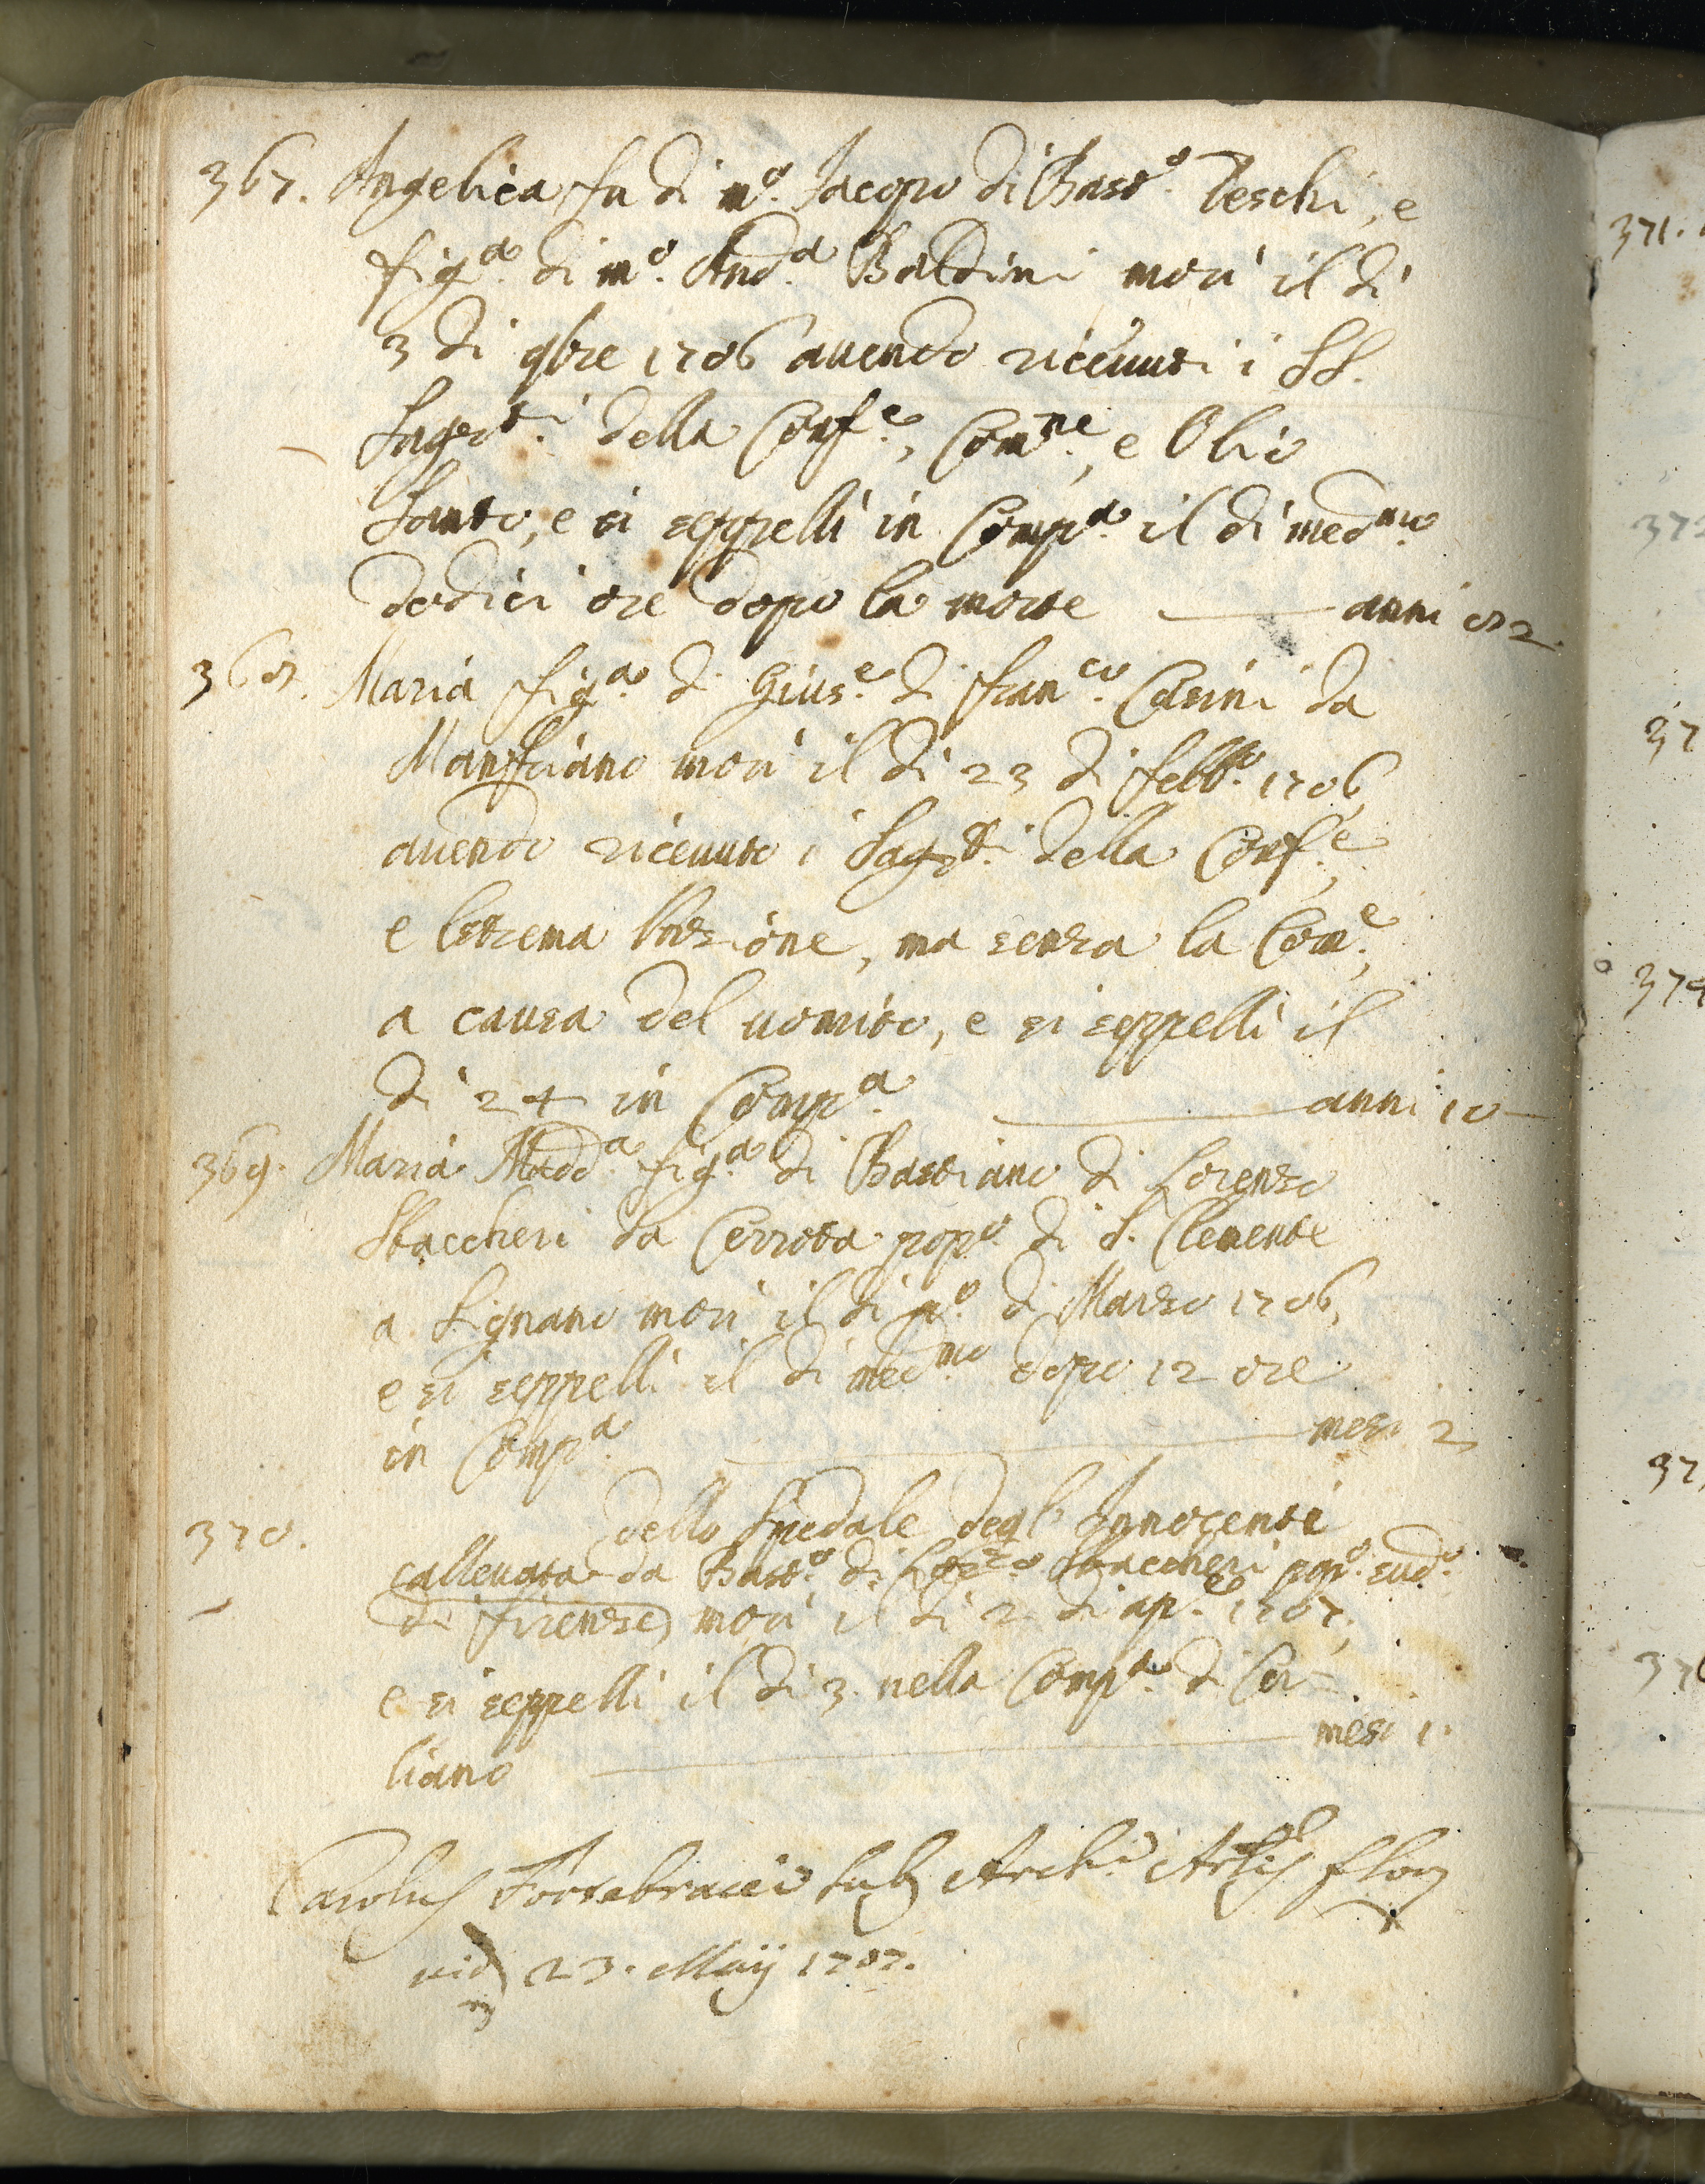 367. Angelica fu di mº. Iacopo di Bastº. Teschi, e
figª. di mº. Andª. Baldini morì il dì
3 di 9bre 1706 auendo riceuuti i SS.
Sagrti. della Confe., Comne., e Olio
Santo, e si seppellì in Compª. il dì medmo.
dodici ore dopo la morte — anni 82
368. Maria figª. di Giuse. di Franco. Casini da
Manfriano morì il dì 23 di Febbº. 1706
auendo riceuuto i Sagrti. della Confe.,
e Estrema Unzione, ma senza la Come.,
a causa del uomito, e si seppellì il
dì 24 in Compª. — anni 10
369. Maria Maddª. figª. di Bastiano di Lorenzo
Staccheri da Cerrota popº. di S. Clemente
a Signano morì il dì pº. di Marzo 1706,
e si seppellì il dì medmo. dopo 12 ore
in Compª. — mesi 2
370. dello Spedale degl' Innocenti
allevata da Bastº. di Lorzo. Staccheri popº. sudº.
di Firenze, morì il dì 2 di ap.e 1707,
e si seppellì il dì 3 nella Compª. di Ca=
liano — mesi 1.
Carolus Fortebracci Sub Archi
vid 23. Maij 1707.
371.
374